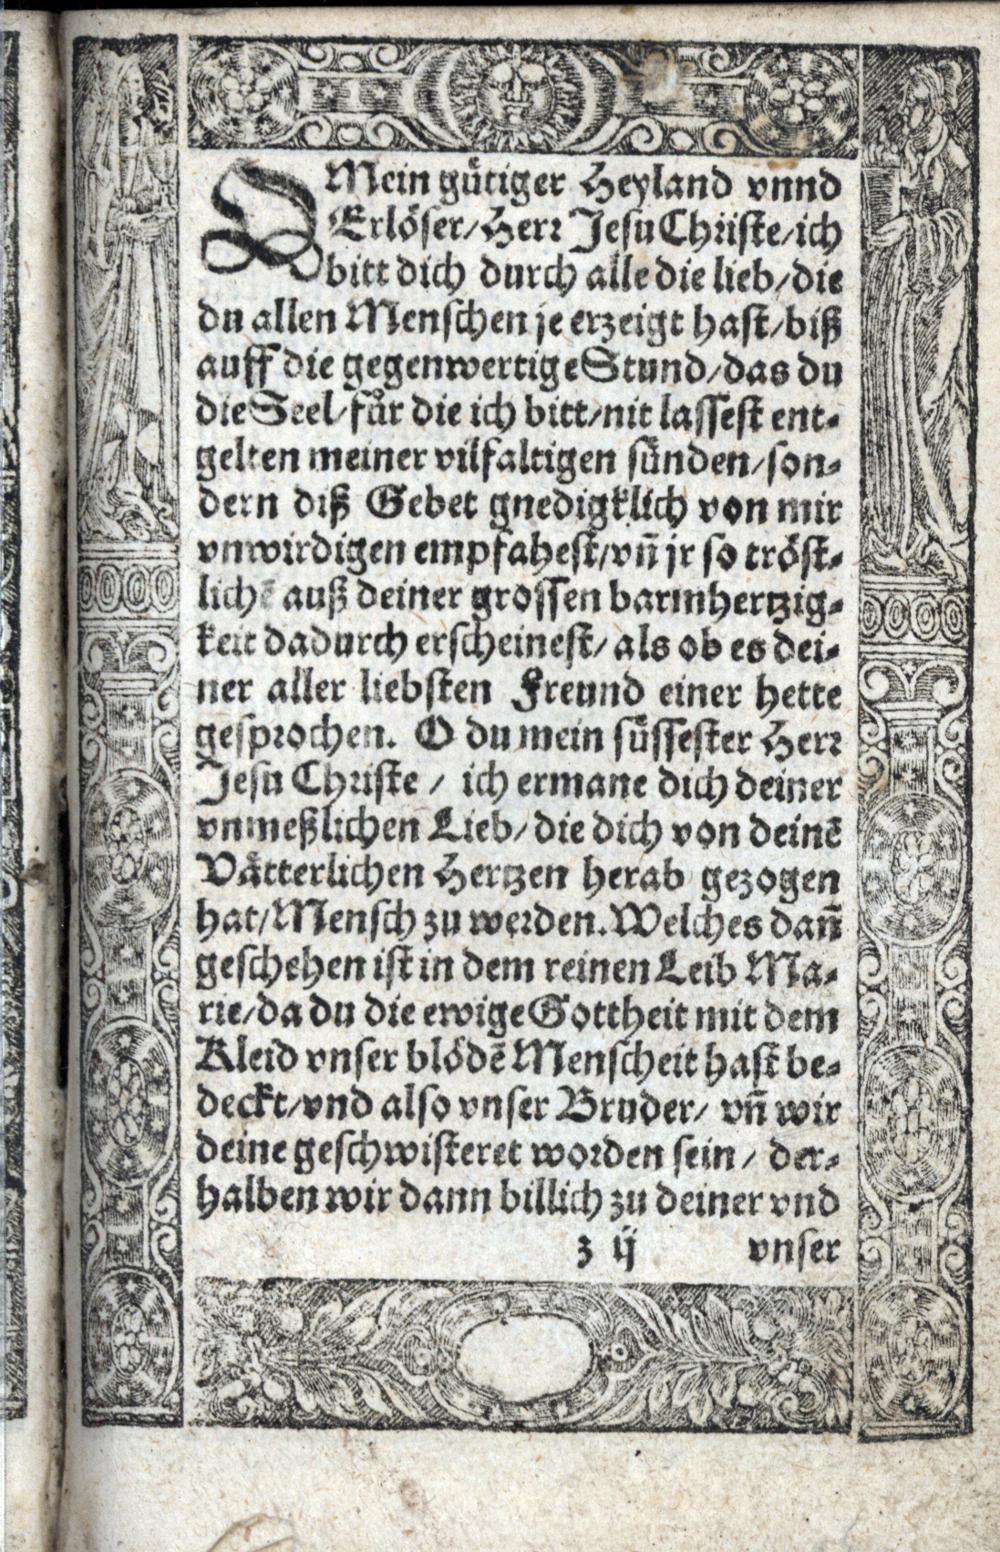 O Mein gütiger Heyland vnnd
Erlöser/Herr Jesu Christe/ich
bitt dich durch alle die lieb/die
du allen Menschen je erzeigt hast/biß
auff die gegenwertige Stund/das du
die Seel/für die ich bitt/nit lassest ent-
gelten meiner vilfaltigen sünden/son-
dern diß Gebet gnedigklich von mir
vnwirdigen empfahest/vñ jr so tröst-
lichẽ auß deiner grossen barmhertzig-
keit dadurch erscheinest/ als ob es dei-
ner aller liebsten Freund einer hette
gesprochen. O du mein süssester Herr
Jesu Christe / ich ermane dich deiner
vnmeßlichen Lieb/die dich von deinẽ
Vätterlichen Hertzen herab gezogen
hat/Mensch zu werden. Welches dañ
geschehen ist in dem reinen Leib Ma-
rie/da du die ewige Gottheit mit dem
Kleid vnser blödẽ Menscheit hast be-
deckt/vnd also vnser Bruder/ vñ wir
deine geschwisteret worden sein / der-
halben wir dann billich zu deiner vnd
z ij vnser